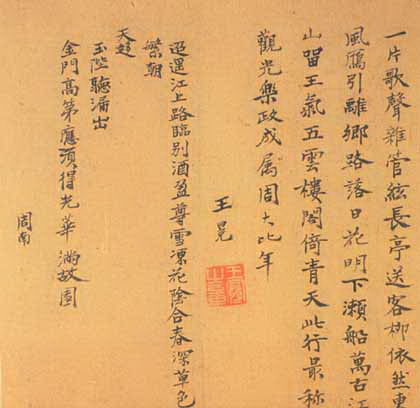 一片歌聲雜管絃長亭送客柳依然東
風鴈引離鄉路落日花明下瀨船萬古江
山留王氣五雲樓閣倚青天此行最稱
觀光樂政成属周大比年
王冕
迢遞江上路臨別酒盈尊雪凍花陰合春深草色
繁朝
天
玉陛聽漏出
金門高第應須得光華滿故園
周南